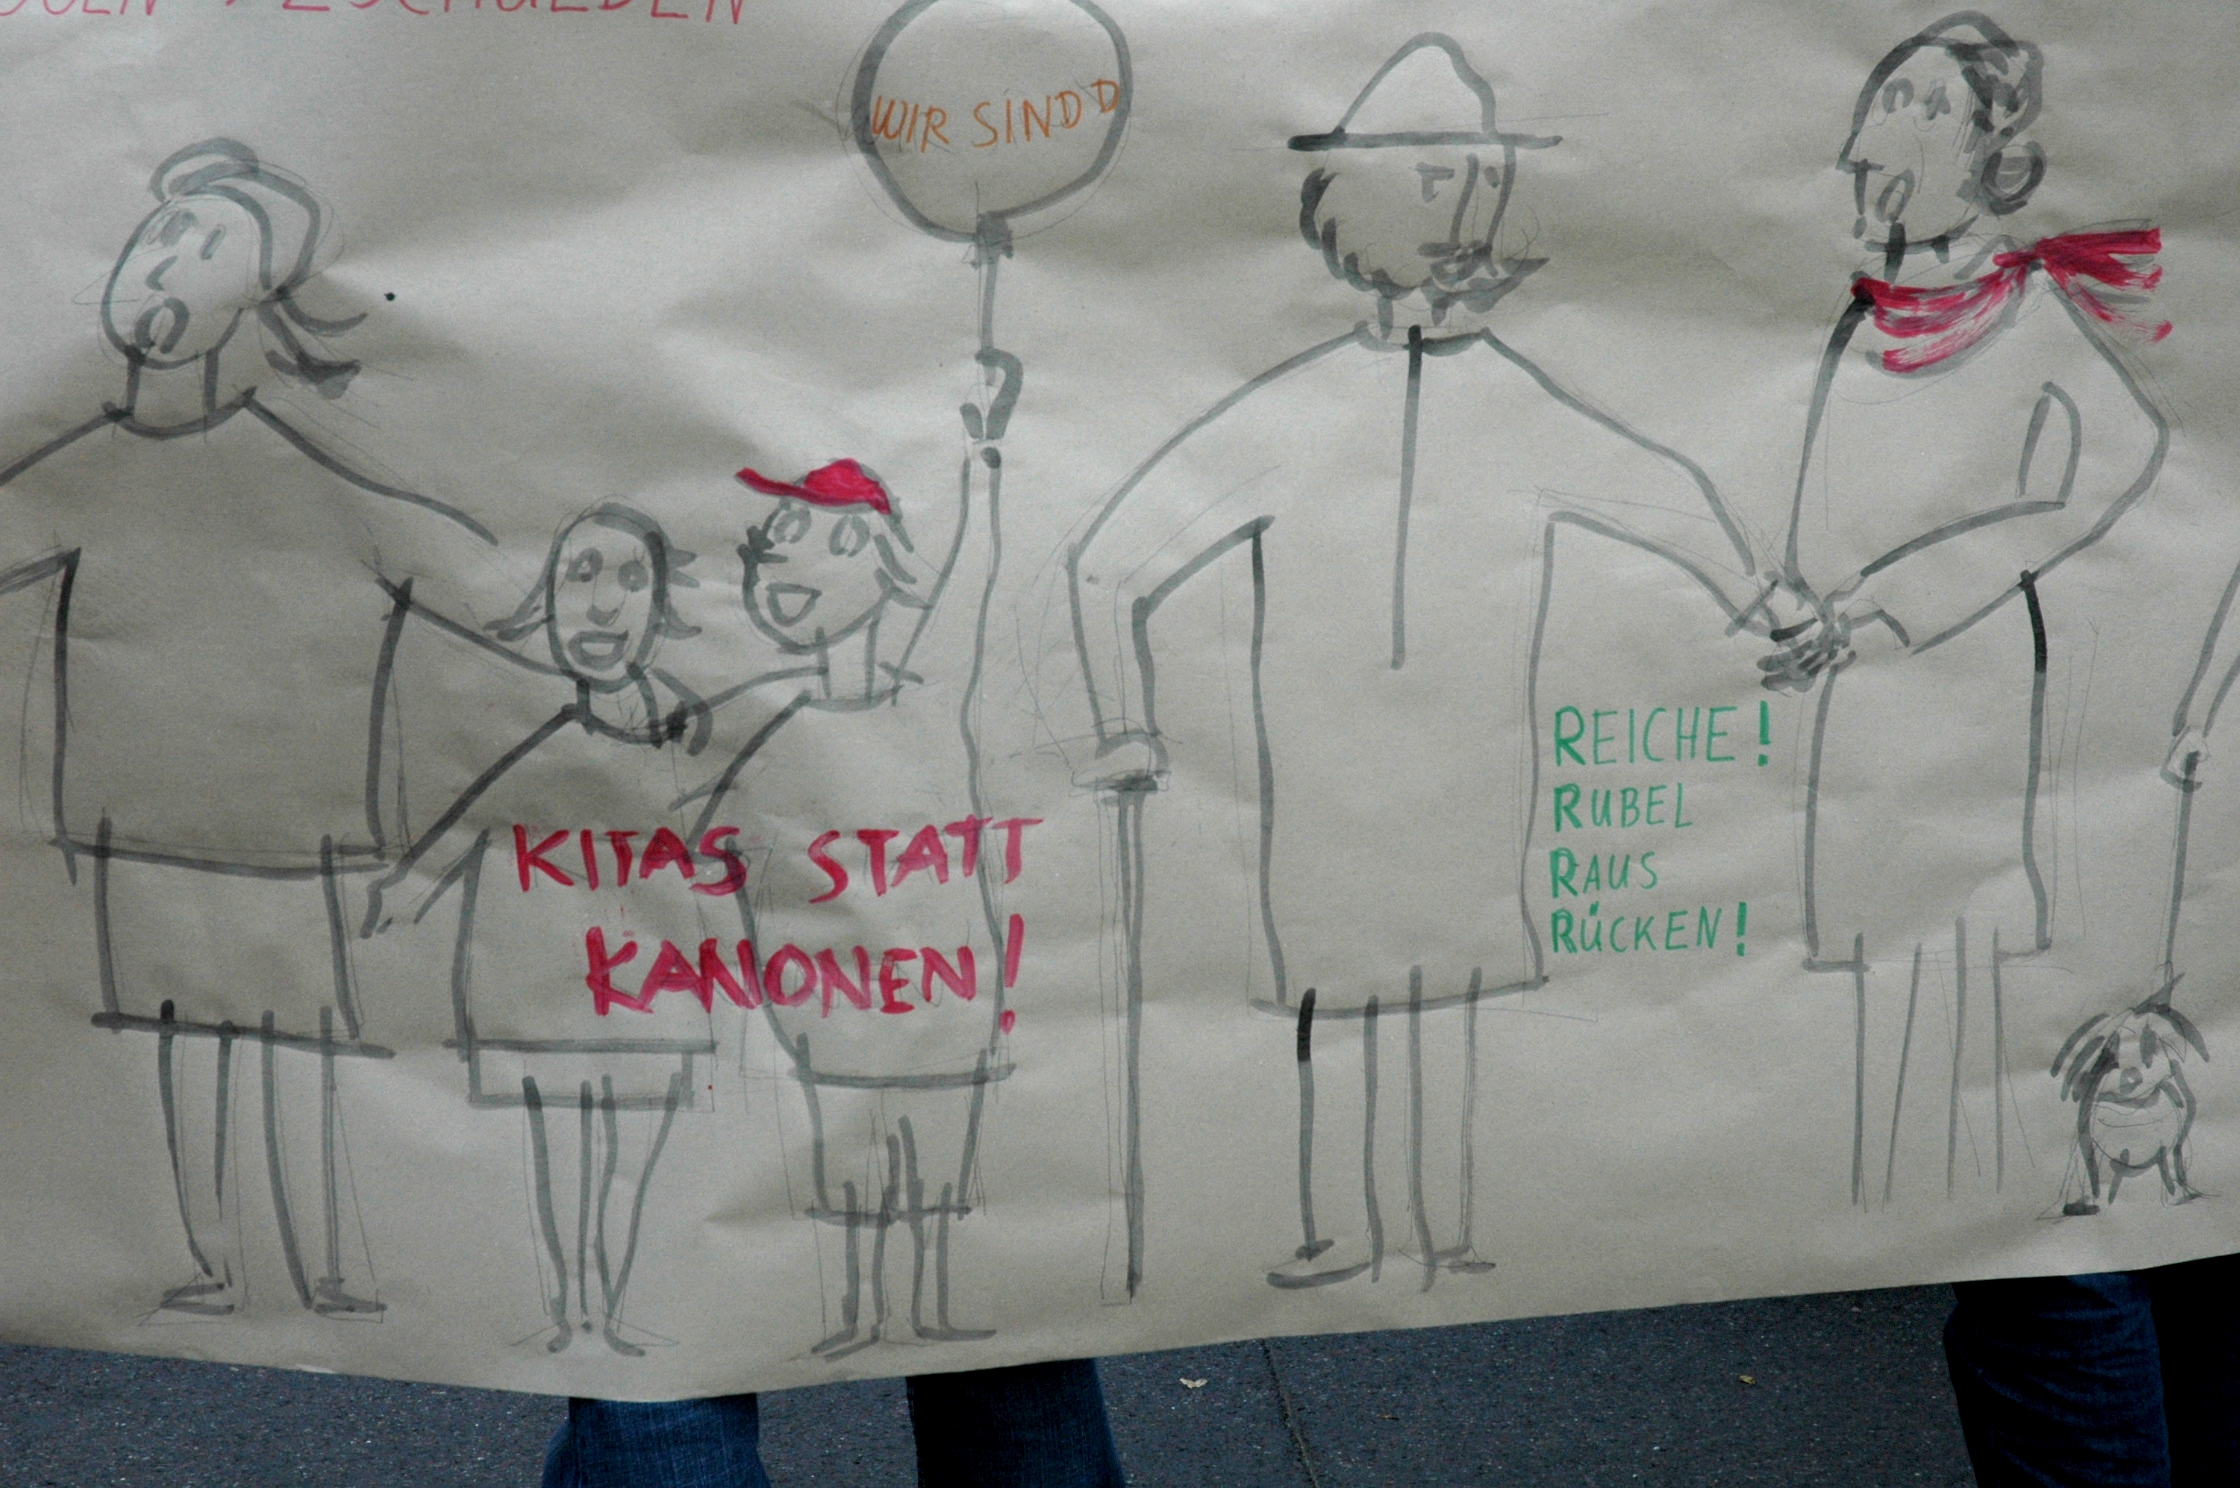 WIR SIND D
KITAS STATT
KANONEN!
REICHE!
RUBEL
RAUS
RÜCKEN!